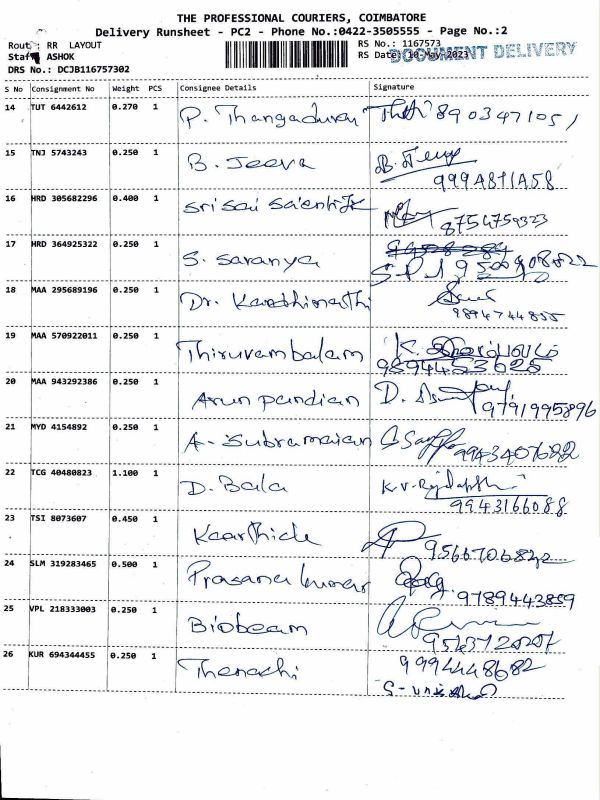 THE PROFESSIONAL COURIERS, COIMBATORE
Delivery Runsheet - PC2 - Phone No.:0422-3505555 - Page No.:2
Route : RR LAYOUT RS No.: 1167573
Staff ASHOK RS Date: 10-May-2023 DOCUMENT DELIVERY
DRS No.: DCJB116757302
S No Consignment No Weight PCS Consignee Details Signature
14 TUT 6442612 0.270 1 P. Thangadurai 8903471051
15 TNJ 5743243 0.250 1 B. Jeeva B. Jeeva
9994871458
16 HRD 305682296 0.400 1 Sri Sai Scientific
8754759323
17 HRD 364925322 0.250 1 S. Saranya
18 MAA 295689196 0.250 1 Dr. Karthimathi
9894744855
19 MAA 570922011 0.250 1 Thiruvambalam K.
9894453625
20 MAA 943292386 0.250 1 Arun pandian D.
9791995896
21 MYD 4154892 0.250 1 A. Subramaian 9943407682
22 TCG 40480823 1.100 1 D. Bala K.V.
9943166088
23 TSI 8073607 0.450 1 Kaarthick
24 SLM 319283465 0.500 1 Prasana kumar
9789443859
25 VPL 218333003 0.250 1 Biobeam
26 KUR 694344455 0.250 1 Thenachi 9994448682